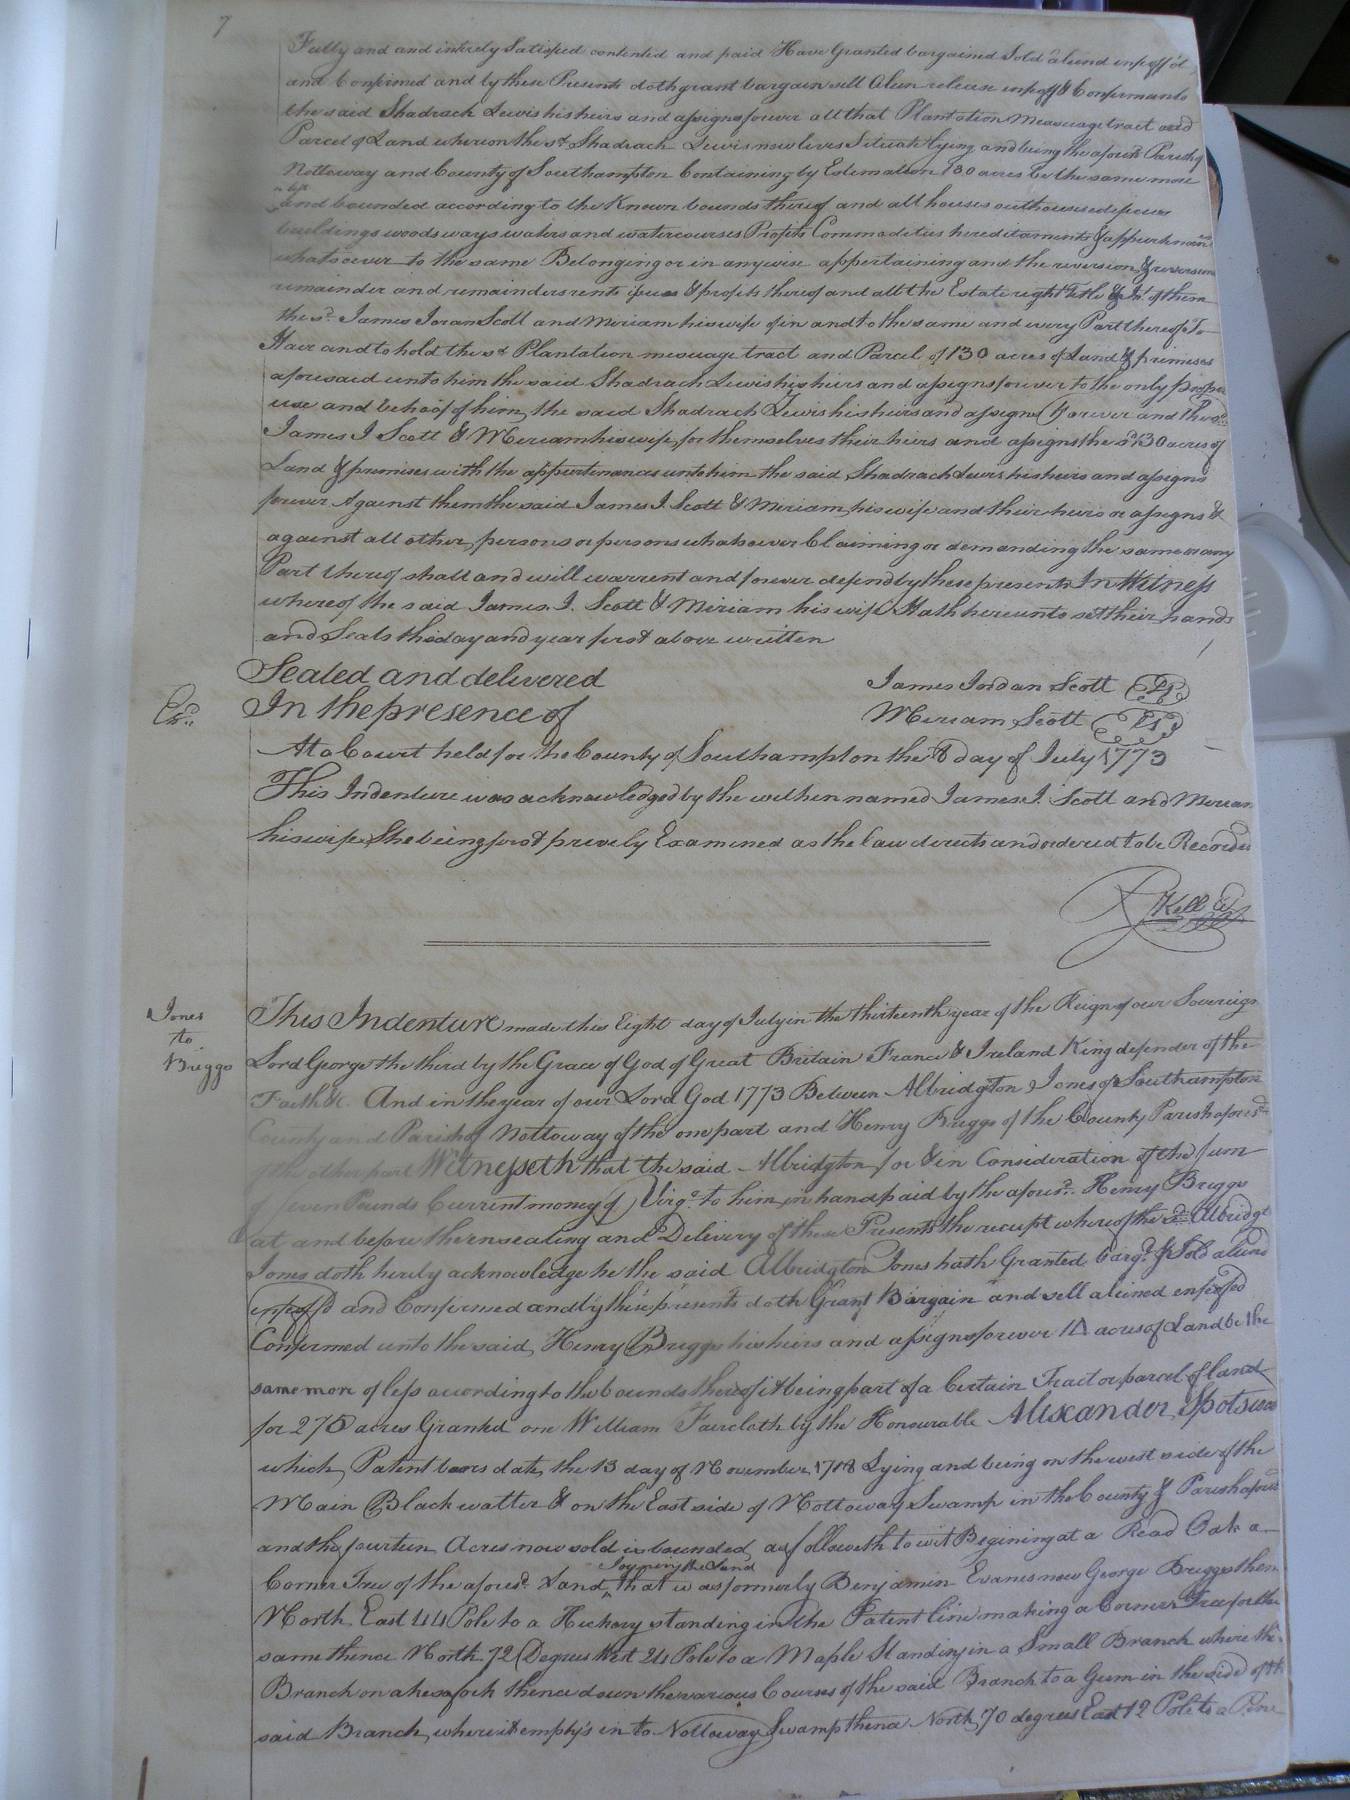 7
Fully and and intirely Satisfied contented and paid Have Granted bargained Sold aliend infeoff'd
and Confirmed and by these Presents doth grant bargain sell Alien release infeoff & Confirm unto
the said Shadrach Lewis his heirs and assigns forever all that Plantation Messuage tract and
Parcel of Land whereon the sd. Shadrach Lewis now lives Situate lying and being the afores'd Parish of
Nottoway and County of Southampton Containing by Estemation 130 acres be the same more
or less
and bounded according to the Known bounds thereof and all houses outhouses
buildings woods ways waters and watercourses Profits Commodities hereditaments & appurtenances
whatsoever to the same Belonging or in anywise appertaining and the reversion & reversions
remainder and remainders rents issues & profits thereof and all the Estate right Title & Int. of them
the sd. James Joran Scott and Miriam his wife of in and to the same and every Part thereof To
Have and to hold the sd Plantation mesuage tract and Parcel of 130 acres of Land & primises
aforesaid unto him the said Shadrach Lewis his heirs and assigns forever to the only proper
use and behoof of him, the said Shadrach Lewis his heirs and assigns Forever and the sd.
James J Scott & Meriam his wife, for themselves their heirs and assigns the sd 130 acres of
Land & premises with the appurtenances unto him the said Shadrach Lewis his heirs and assigns
forever Against them the said James J. Scott & Miriam his wife and their heirs or assigns &
against all other persons or persons whatsoever Claiming or demanding the same or any
Part thereof shall and will warrent and forever defend by these presents In Witness
whereof the said James. J. Scott & Miriam his wife Hath hereunto set their hands
and Seals the day and year first above written
Sealed and delivered
James Jordan Scott Ls
In the presence of
Meriam Scott Ls
Exd.
At a Court held for the County of Southampton the 8 day of July 1773
This Indenture was acknowledged by the within named James J. Scott and Meriam
his wife She being first privily Examined as the law directs and ordered to be Recorded
R Kello
Jones
to
Briggs
This Indenture made this Eight day of July in the thirteenth year of the Reign of our Sovereign
Lord George the third by the Grace of God of Great Britain France & Ireland King defender of the
Faith &c. And in the year of our Lord God 1773 Between Albridgton Jones of Southampton
County and Parish of Nottoway of the one part and Henry Briggs of the County Parish afores'd
of the other part Witnesseth that the said Albridgton for & in Consideration of the sum
of seven Pounds Current money of Virga. to him in hand paid by the afores'd. Henry Briggs
at and before the ensealing and Delivery of these Presents the receipt whereof the sd. Albridgt
Jones doth hereby acknowledge he the said Albridgton Jones hath Granted barg'd & Sold aliend
infeoff'd and Confirmed and by these presents doth Grant Bargain and sell aliened enfeofed
Confermed unto the said Henry Briggs his heirs and assigns forever 14 acres of Land be the
same more of less according to the bounds thereof it being part of a Certain Tract or parcel of land
for 275 acres Granted one William Faircloth by the Honourable Alixander Spotswood
which Patent bears date the 13 day of November 1718 Lying and being on the west side of the
Main Black watter & on the East side of Nottoway Swamp in the County & Parish afores'd
and the fourteen Acres now sold is bounded as followeth to wit Begining at a Read Oak a
Joyning the Land
Corner Tree of the afores'd. Land, that was formerly Benjamin Evans now George Briggs then
North East 44 Pole to a Hickory standing in the Patent line making a Corner Tree for the
same thence North 72 Degrees West 24 Pole to a Maple Standing in a Small Branch where the
Branch makes a fork thence down the various Courses of the said Branch to a Gum in the side of the
said Branch, where it emptys in to Nottoway Swamp thence North 70 degrees East 12 Pole to a Pine